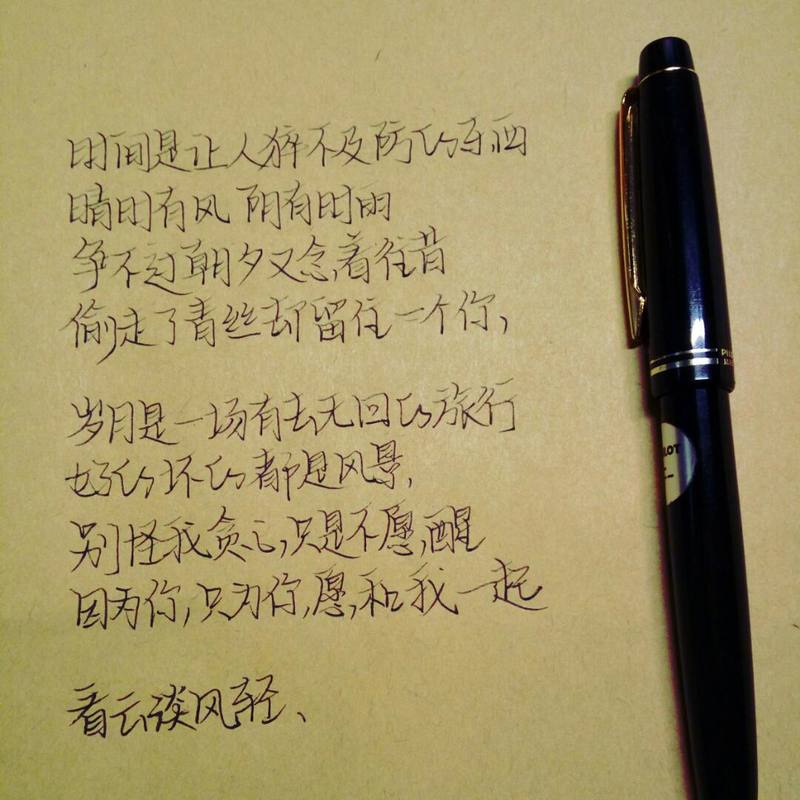 时间是让人猝不及防的东西
晴时有风 阴有时雨
争不过朝夕又念着往昔
偷走了青丝却留住一个你,
岁月是一场有去无回的旅行
好的坏的都是风景,
别怪我贪心,只是不愿醒
因为你,只为你,愿和我一起
看云谈风轻、